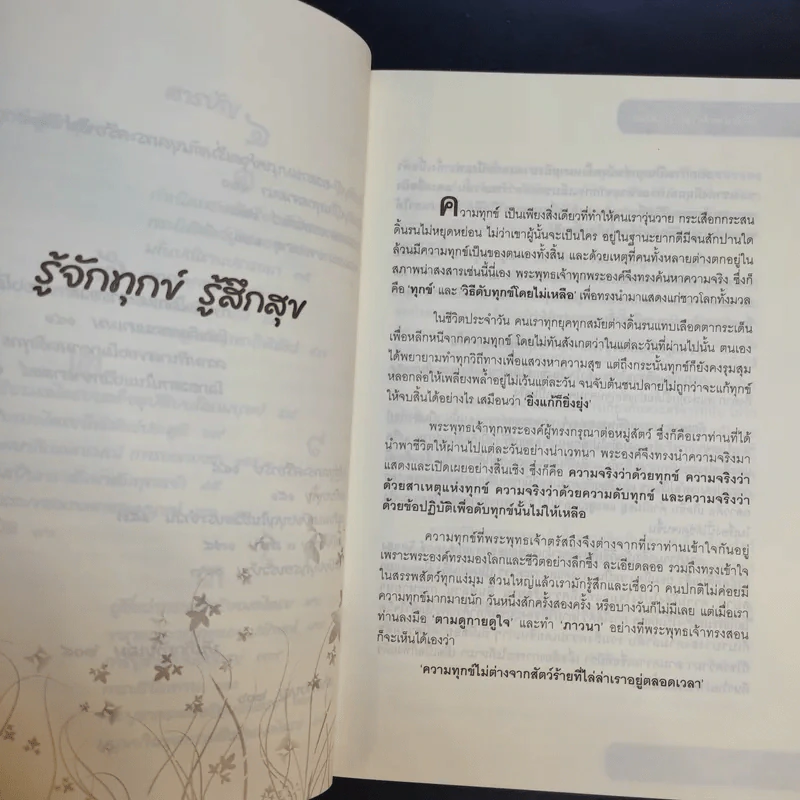 รู้จักทุกข์ รู้สึกสุข
ความทุกข์ เป็นเพียงสิ่งเดียวที่ทำให้คนเราวุ่นวาย กระเสือกกระสน
ดิ้นรนไม่หยุดหย่อน ไม่ว่าเขาผู้นั้นจะเป็นใคร อยู่ในฐานะยากดีมีจนสักปานใด
ล้วนมีความทุกข์เป็นของตนเองทั้งสิ้น และด้วยเหตุที่คนทั้งหลายต่างตกอยู่ใน
สภาพน่าสงสารเช่นนี้นี่เอง พระพุทธเจ้าทุกพระองค์จึงทรงค้นหาความจริง ซึ่งก็
คือ 'ทุกข์' และ 'วิธีดับทุกข์โดยไม่เหลือ' เพื่อทรงนำมาแสดงแก่ชาวโลกทั้งมวล
ในชีวิตประจำวัน คนเราทุกยุคทุกสมัยต่างดิ้นรนแทบเลือดตากระเด็น
เพื่อหลีกหนีจากความทุกข์ โดยไม่ทันสังเกตว่าในแต่ละวันที่ผ่านไปนั้น ตนเอง
ได้พยายามทำทุกวิถีทางเพื่อแสวงหาความสุข แต่ถึงกระนั้นทุกข์ก็ยังคงรุมสุม
หลอกล่อให้เพลี่ยงพล้ำอยู่ไม่เว้นแต่ละวัน จนจับต้นชนปลายไม่ถูกว่าจะแก้ทุกข์
ให้จบสิ้นได้อย่างไร เสมือนว่า 'ยิ่งแก้ก็ยิ่งยุ่ง'
พระพุทธเจ้าทุกพระองค์ผู้ทรงกรุณาต่อหมู่สัตว์ ซึ่งก็คือเราท่านที่ได้
นำพาชีวิตให้ผ่านไปแต่ละวันอย่างน่าเวทนา พระองค์จึงทรงนำความจริงมา
แสดงและเปิดเผยอย่างสิ้นเชิง ซึ่งก็คือ ความจริงว่าด้วยทุกข์ ความจริงว่า
ด้วยสาเหตุแห่งทุกข์ ความจริงว่าด้วยความดับทุกข์ และความจริงว่า
ด้วยข้อปฏิบัติเพื่อดับทุกข์นั้นไม่ให้เหลือ
ความทุกข์ที่พระพุทธเจ้าตรัสถึงจึงต่างจากที่เราท่านเข้าใจกันอยู่
เพราะพระองค์ทรงมองโลกและชีวิตอย่างลึกซึ้ง ละเอียดลออ รวมถึงทรงเข้าใจ
ในสรรพสัตว์ทุกแง่มุม ส่วนใหญ่แล้วเรามักรู้สึกและเชื่อว่า คนปกติไม่ค่อยมี
ความทุกข์มากมายนัก วันหนึ่งสักครั้งสองครั้ง หรือบางวันก็ไม่มีเลย แต่เมื่อเรา
ท่านลงมือ 'ตามดูกายดูใจ' และทำ 'ภาวนา' อย่างที่พระพุทธเจ้าทรงสอน
ก็จะเห็นได้เองว่า
'ความทุกข์ไม่ต่างจากสัตว์ร้ายที่ไล่ล่าเราอยู่ตลอดเวลา'